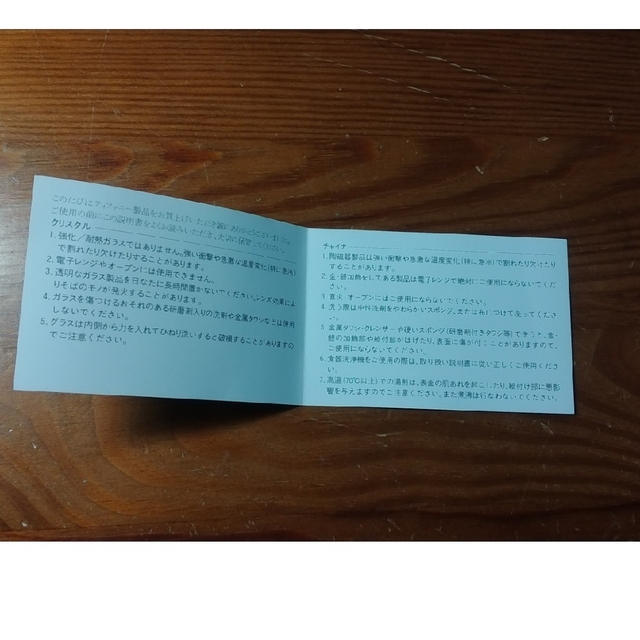 このたびはティファニー製品をお買上げいただき誠にありがとうございます。
ご使用の前にこの説明書をよくお読みいただき、大切に保管してください。
クリスタル
1. 強化／耐熱ガラスではありません。強い衝撃や急激な温度変化(特に急冷)
で割れたり欠けたりすることがあります。
2. 電子レンジやオーブンには使用できません。
3. 透明なガラス製品を日なたに長時間置かないでください。レンズ効果によ
りそばのモノが発火することがあります。
4. ガラスを傷つけるおそれのある研磨剤入りの洗剤や金属タワシなどは使用
しないでください。
5. グラスは内側から力を入れてひねり洗いすると破損することがありますの
でご注意ください。
チャイナ
1. 陶磁器製品は強い衝撃や急激な温度変化(特に急冷)で割れたり欠けたり
することがあります。
2. 金・銀加飾をしてある製品は電子レンジで絶対にご使用にならないでくだ
さい。
3. 直火・オーブンにはご使用にならないでください。
4. 洗う際は中性洗剤をやわらかいスポンジ、または布につけて洗ってくださ
い。
5. 金属タワシ・クレンザーや硬いスポンジ(研磨剤付きタワシ等)で洗うと、金・
銀の加飾部や絵付部がはげたり、表面に傷が付くことがありますので、
ご使用にならないでください。
6. 食器洗浄機をご使用の際は、取り扱い説明書に従い正しくご使用くださ
い。
7. 高温(70℃以上)での湯剤は、表面の肌あれを起こしたり、絵付け部に悪影
響を与えますのでご注意ください。また煮沸は行なわないでください。